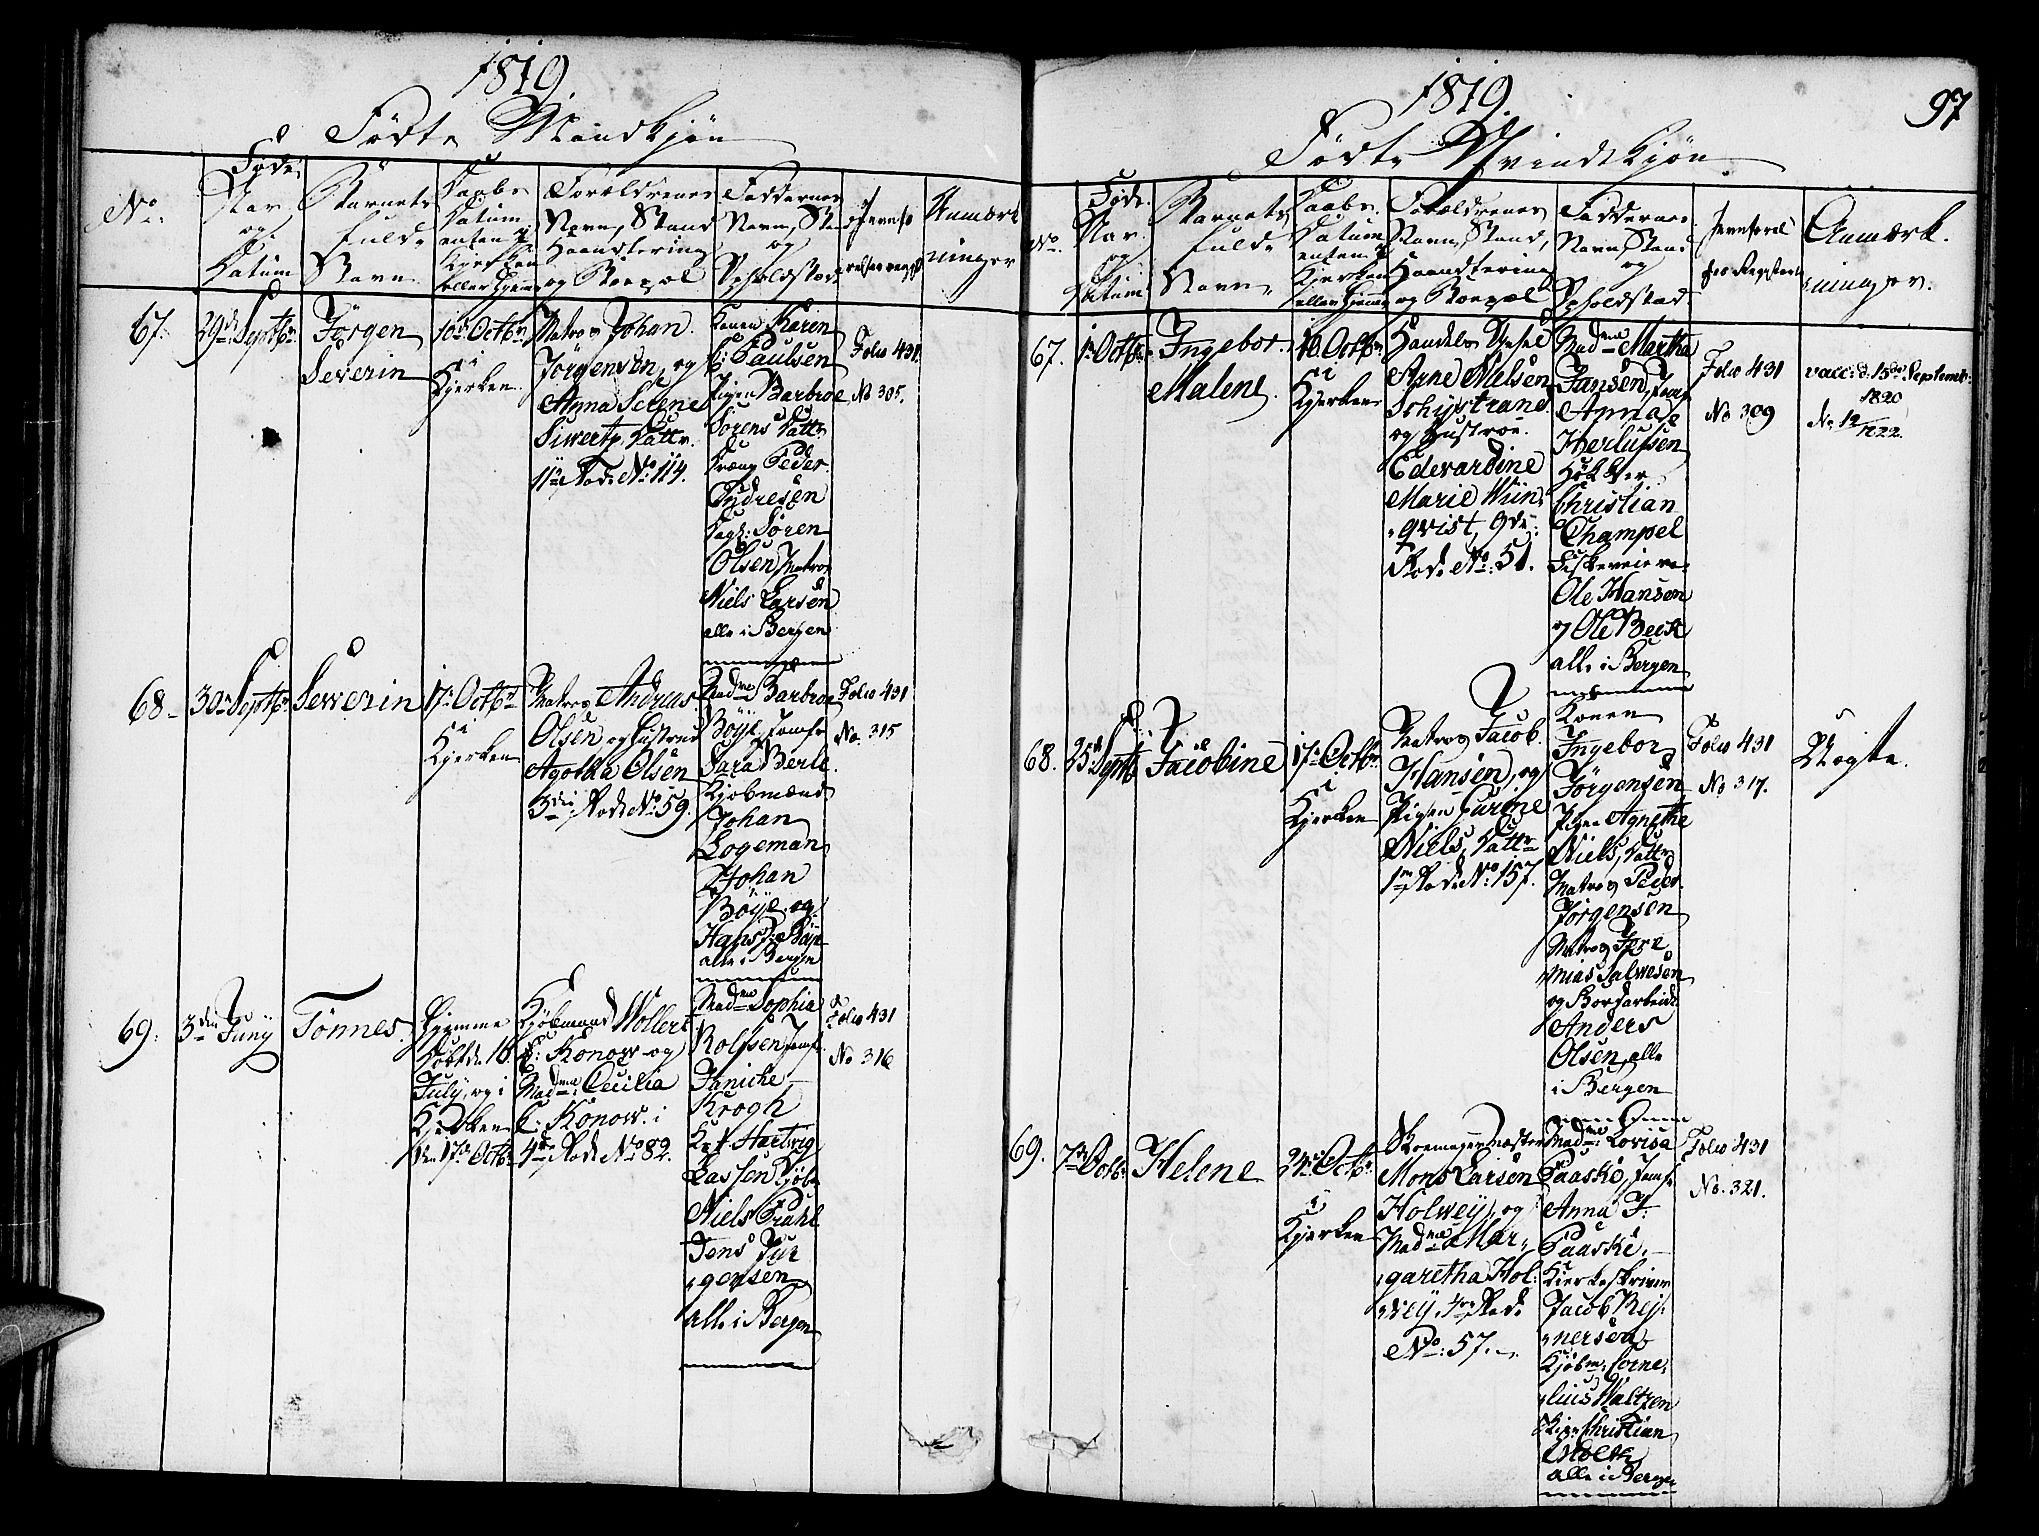 1819
Födte Mandkjön
No.
Føde
Aar
og
Datum
Barnets
fulde
Navn
Daabs
Datum
enten i
Kjerken
eller hjemme
Forældrenes
Navn, Stand
Haandtering
og Boepæl
Faddernes
Navn, Stand
og
Opholdstæd
Jevnfø
relsesregist
Anmærk
ninger
67.
29de Septbr
Jörgen
Severin
10de Octbr
i
Kjerken
Matros Johan
Jörgensen, og
Anna Serene
Siwerts Dattr.
11te Rode No. 114.
Konen Karin
Paulsen
Pigen Barbroe
Sörens Dattr
Peder
Endresen
Sören
Olsen Matros
Niels Larsen
alle i Bergen
Folio 431
No 305.
68
30te Septbr
Sewerin
17de Octbr
i
Kjerken
Matros Andreas
Olsen og Hustrue
Agotha Olsen
3die Rode No. 59.
Madme Barbroe
Böye, Jomfr
Sara Berle
Kjöbmænd
Johan
Logeman
Johan
Böye, og
Hans Böye
alle i Bergen
Folio 431
No. 315
69.
3die Juny
Tönnes
Hjemme
döbt den 16
July, og i
Kjerken
den 17de Octbr
Kjöbmand Wollert
Konow og
Madme Cecilia
C: Konow. i
4de Rode No 82.
Madme Sophia
Rolfsen Jomfr
Janiche
Krogh
Kapt. Hartvig
Lassen Kjöbm
Niels Prahl
Jens Jür
gensen
alle i Bergen
Folio 431
No 316
1819
97
Födte Qvindekjön
No.
Føde
Aar
og
Datum
Barnets
fulde
Navn
Daabs
Datum
enten i
Kjerken
eller hjemme
Forældrenes
Navn, Stand,
Haandtering
og Boepæl
Faddernes
Navn, Stand
og
Opholdstad
Jevnförel
ses Register
Anmærk
ninger.
67.
1te Octbr
Ingebor
Malene
10. Octbr
i
Kjerken
Handels
Arne Nielsen
Schystrand
og Hustroe
Edevardine
Marie Wiin
qvist, 9de
Rode No. 51.
Madme Martha
Jansen, Jomfr
Anna
Herlufsen
Hökker
Christian
Champel
Fiskeveiere
Ole Hansen
og Ole Beck
alle i Bergen
Folio 431
No 309
vacc: d. 15de Septembr
1820
No 12/1822.
68.
25de Septbr
Jacobine
17de Octbr
i
Kjerken
Matros Jacob
Hansen, og
Pigen Gurine
Niels Dattr
1ste Rode No. 157.
Konen
Ingebor
Jörgensen
Pigen Agnethe
Niels Dattr
Matros Peder
Jörgensen
Matros Jere
mias Salwesen
og Bordarbeider
Anders
Olsen, alle
i Bergen
Folio 431
No 317.
Uægte.
69.
7de Octbr
Helene
24de Octbr
i
Kjerken
Skoemagermæster
Mons Larsen
Holwey, og
Madme Mar
garetha Hol
wey, Rode
No. 57.
Madme Lovisa
Paaske, Jomfr
Anna J:
Paaske
Kierkeskriver
Jacob Rej
nersen
Kjöbm: Corne
lius Waltzen
Christian
Holth
alle i Bergen
Folio 431
No. 321.